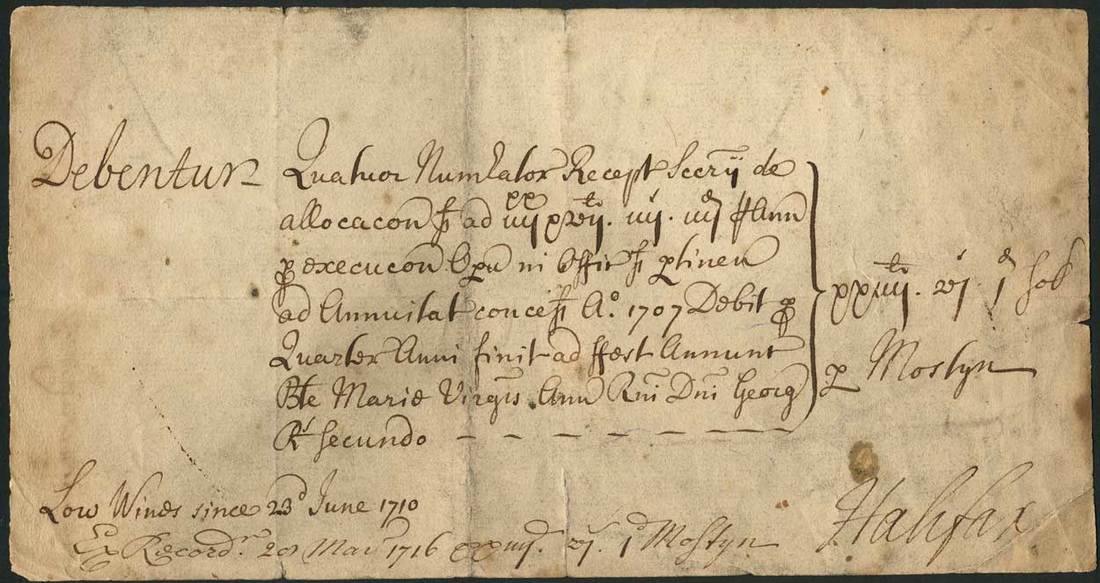 Debentur Quatuor Num̃ator Recept Sccrij de
allocacon ad iiij xvij. iiij. iiij Ann
execucon Offic ptinen
ad Annuitat concess Ao. 1707 Debit p
Quarter Anni finit ad ffest Annunt
Bte Marie Virgis Ann Rni Dni Georg
Rs secundo
xxiiij. vj. j sol
p Mostyn
Low Wines since 23d June 1710
Ex Recordr. Mar 1716 xxiiij. vj. j Mostyn
Halifax